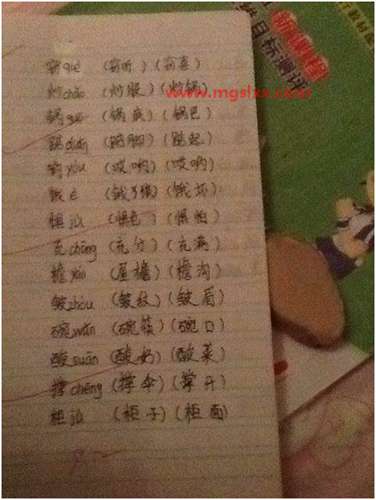 窃qiè (窃听)(窃喜)
炒chǎo (炒股)(炒锅)
锅guō (锅底)(锅巴)
踮diǎn (踮脚)(踮起)
哟yōu (哎哟)(哎哟)
饿è (饿了)(饿坏)
惧jù (惧色)(惧怕)
充chōng (充分)(充满)
檐yán (屋檐)(檐沟)
皱zhòu (皱纹)(皱眉)
碗wǎn (碗筷)(碗口)
酸suān (酸奶)(酸菜)
撑chēng (撑伞)(撑开)
柜jù (柜子)(柜面)
www.mgslxx.com
目标测评